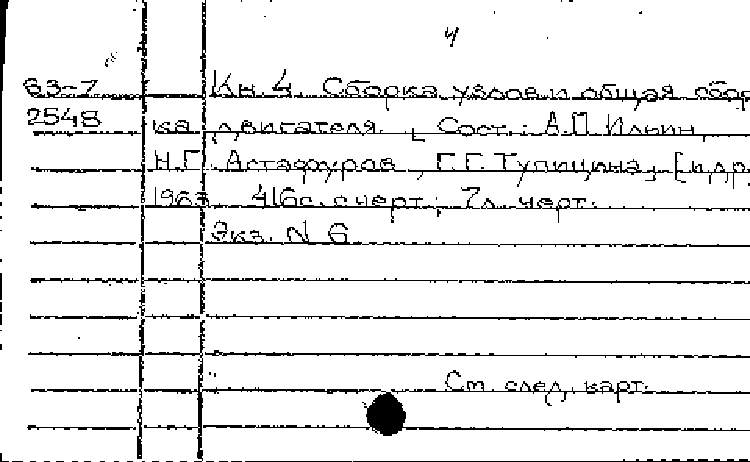 4
63-7 Кн. 4. Сборка узлов и общая сбор
2548 ка двигателя. [Сост.: А.П. Ильин,
Н.П. Астафуров, Г.Г. Тупицына, [и др.
1963 416 с. с черт.; 7 л. черт.
Экз. N 6
См. след. карт.